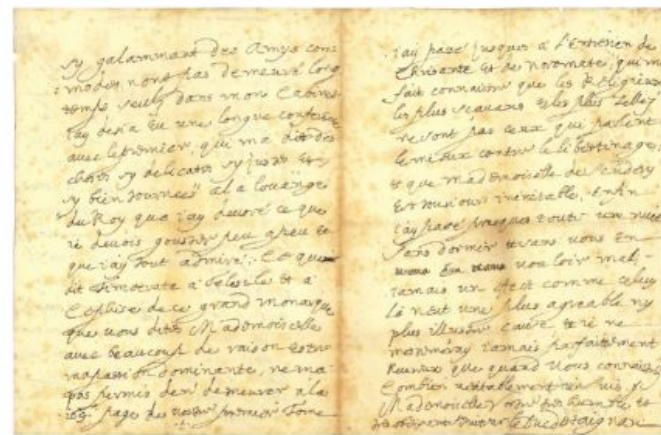 sy galammant des Amys com=
modes, nont pas demeuré long
temps seuls dans mon Cabinet
iay desia Eu une longue conferance
avec le premier, qui ma dit des
choses sy delicates sy justes Et
sy bien tournées a la louange
du Roy que iay devoré ce que
ie devois gouster peu a peu Et
que iay tout admiré. Ce que
dit a et a
de ce grand monarque
que vous dites Mademoiselle
avec beaucoup de raison estre
ma passion dominante, ne ma
pas permis den demeurer a la
page de vostre premier Tome
iay passé jusques a L'Entretien de
Et de qui ma
fait connoistre que les
les plus scavans Et les plus Zellez
ne sont pas ceux qui parlent
le mieux contre le libertinage,
et que Mademoiselle de Scudery
Est tousiours inimitable, Enfin
iay passé presques toute une nuit
sans dormir Et sans vous En
vouloir mal,
iamais un effect comme celuy
là neut une plus agreable ny
plus illustre cause Et ie ne
iamais parfaitement
heureux que quand vous connoistrez
Combien veritablement ie suis,
Mademoiselle vostre tres humble et
tres obeissant serviteur le Duc de St aignan